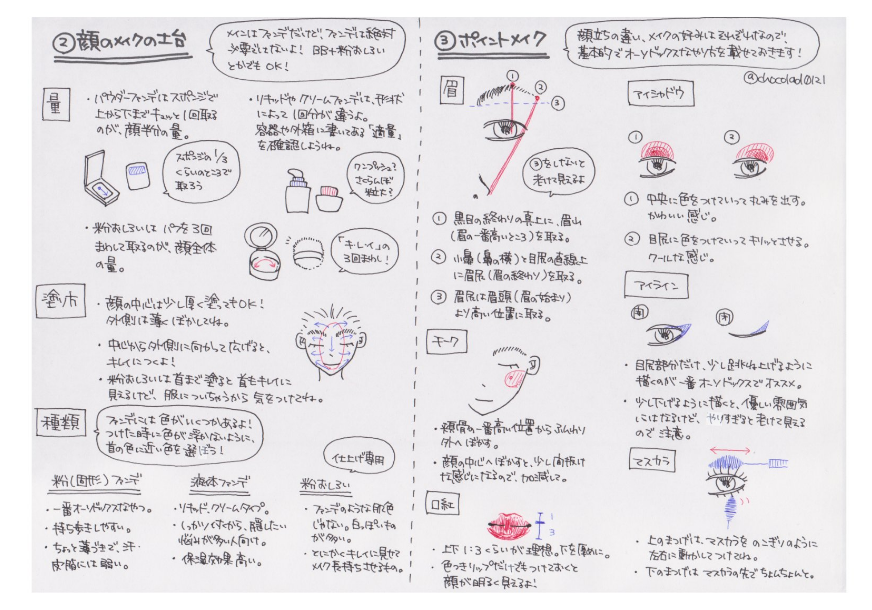 ②顔のメイクの土台
メインはファンデだけど、ファンデは絶対
必要じてないよ! BB+粉おしろい
とかでもOK!
量
・パウダーファンデはスポンジで
上から下までキュッと1回取る
のが、顔半分の量。
・リキッドやクリームファンデは、形状
によって1回分が違うよ。
容器や外箱に書いてある「適量」
を確認しようね。
スポンジの1/3
くらいのところで
取ろう
ワンプッシュ?
さくらんぼ
粒大?
・粉おしろいはパフを3回
まわして取るのが、顔全体
の量。
「キレイ」の
3回まわし!
塗り方
・顔の中心は少し厚く塗ってもOK!
外側は薄くぼかしてね。
・中心から外側に向かって広げると、
キレイにつくよ!
・粉おしろいは首まで塗ると首もキレイに
見えるけど、服についちゃうから気をつけてね。
種類
ファンデには色がいくつかあるよ!
つけた時に色が浮かないように、
首の色に近い色を選ぼう!
仕上げ専用
粉(固形)ファンデ
・一番オーソドックスなやつ。
・持ち歩きしやすい。
・ちょっと薄づきで、汗・
皮脂には弱い。
液体ファンデ
・リキッド、クリームタイプ。
・しっかりつくから、隠したい
悩みが多い人向け。
・保湿効果高い。
粉おしろい
・ファンデのような肌色
じゃない。白っぽいもの
が多い。
・とにかくキレイに見せて
メイク長持ちさせるもの。
③ポイントメイク
顔立ちの違い、メイクの好みはそれぞれなので、
基本的でオーソドックスなやり方を載せておきます!
@chocolad0121
眉
①
②
③
③をしないと
老けて見えるよ
① 黒目の終わりの真上に、眉山
(眉の一番高いところ)を取る。
② 小鼻(鼻の横)と目尻の直線上
に眉尻(眉の終わり)を取る。
③ 眉尻は眉頭(眉の始まり)
より高い位置に取る。
チーク
・頬骨の一番高い位置からふんわり
外へぼかす。
・顔の中心へぼかすと、少し間抜け
な感じになるので、加減して。
口紅
1
3
・上下1:3くらいが理想。下を厚めに。
・色つきリップだけでもつけておくと
顔が明るく見えるよ!
アイシャドウ
①
②
① 中央に色をつけていって丸みを出す。
かわいい感じ。
② 目尻に色をつけていってキリッとさせる。
クールな感じ。
アイライン
開
閉
・目尻部分だけ、少し跳ね上げるように
描くのが一番オーソドックスでオススメ。
・少し下げるように描くと、優しい雰囲気
にはなるけど、やりすぎると老けて見える
ので注意。
マスカラ
・上のまつげは、マスカラをのこぎりのように
左右に動かしてつけてね。
・下のまつげはマスカラの先でちょんちょんと。